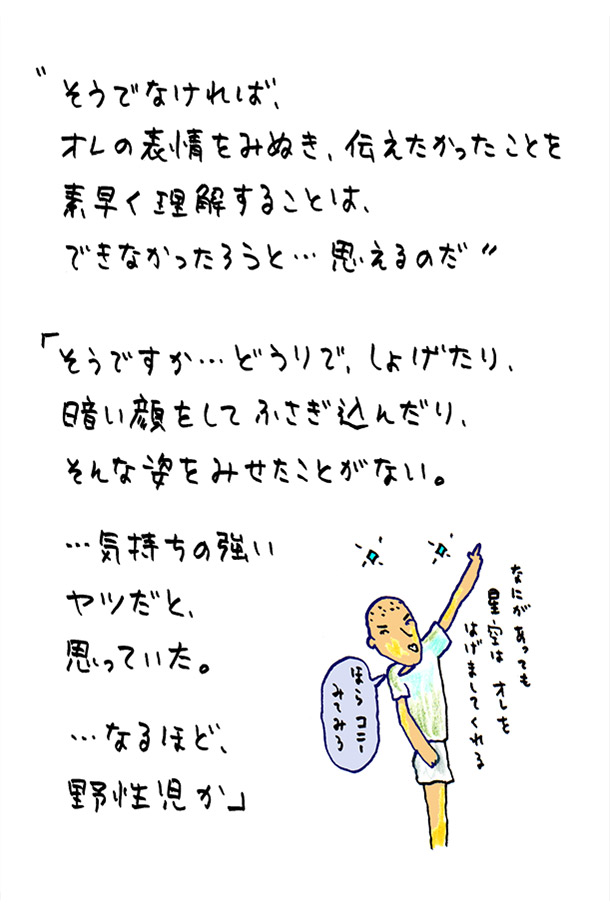 “そうでなければ、
オレの表情をみぬき、伝えたかったことを
素早く理解することは、
できなかったろうと…思えるのだ”
「そうですか…どうりで、しょげたり、
暗い顔をしてふさぎ込んだり、
そんな姿をみせたことがない。
…気持ちの強い
ヤツだと、
思っていた。
…なるほど、
野性児か」
なにがあっても
星空は オレを
はげましてくれる
ほら コニー
みてみろ